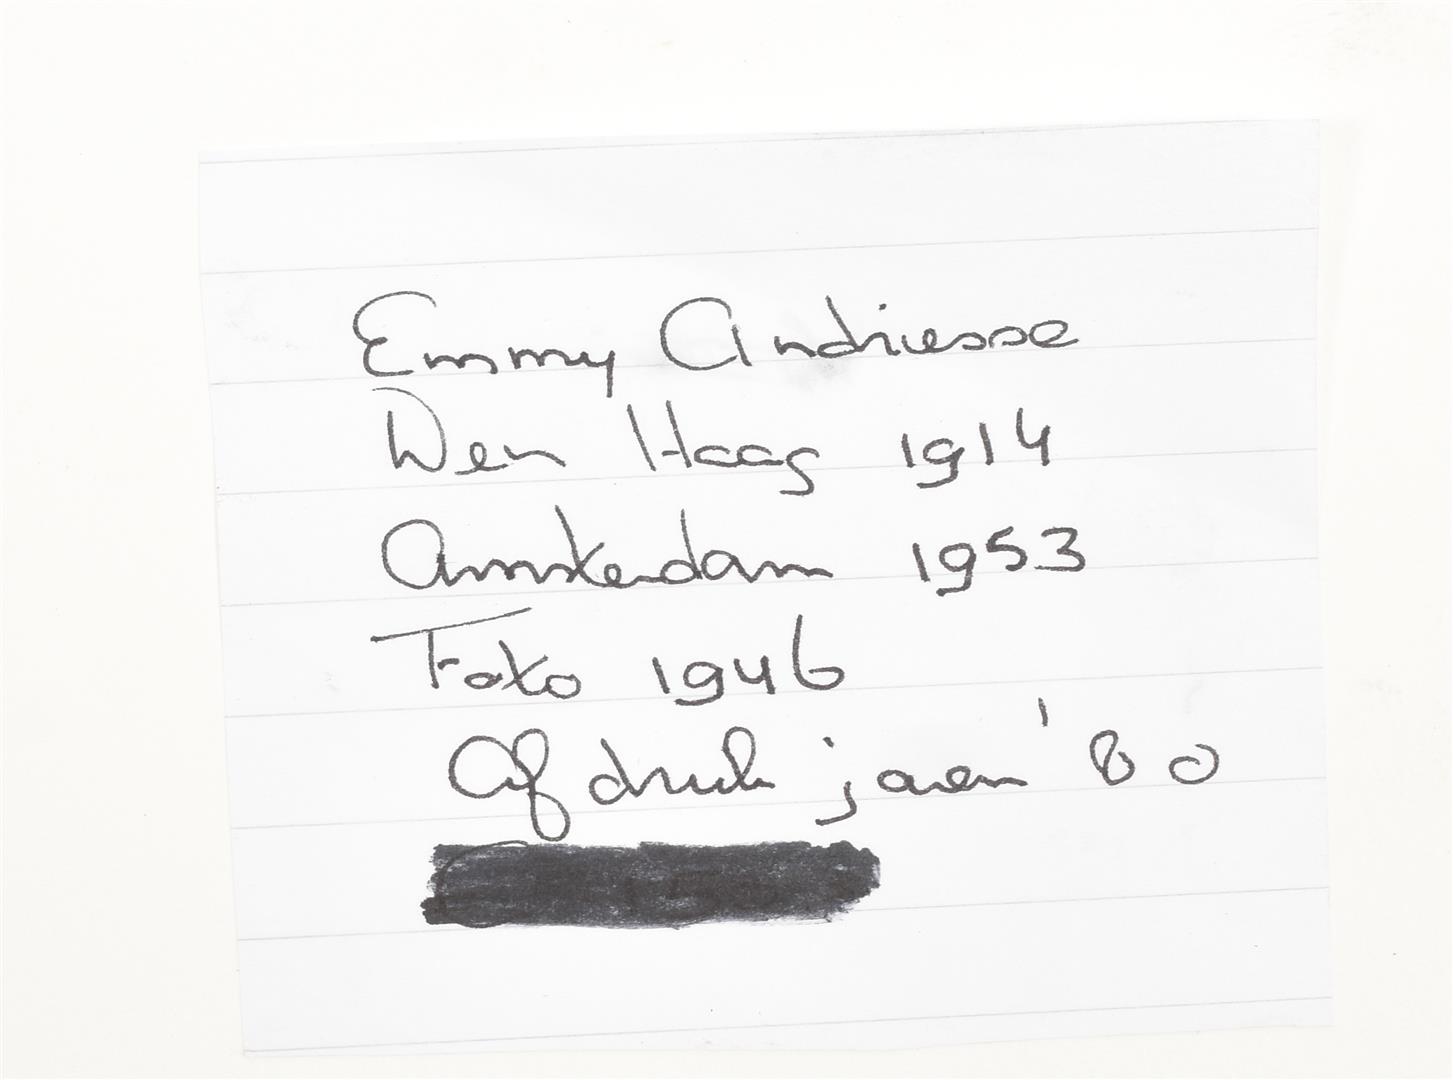 Emmy Andriesse
Den Haag 1914
Amsterdam 1953
Foto 1946
Afdruk jaren '80